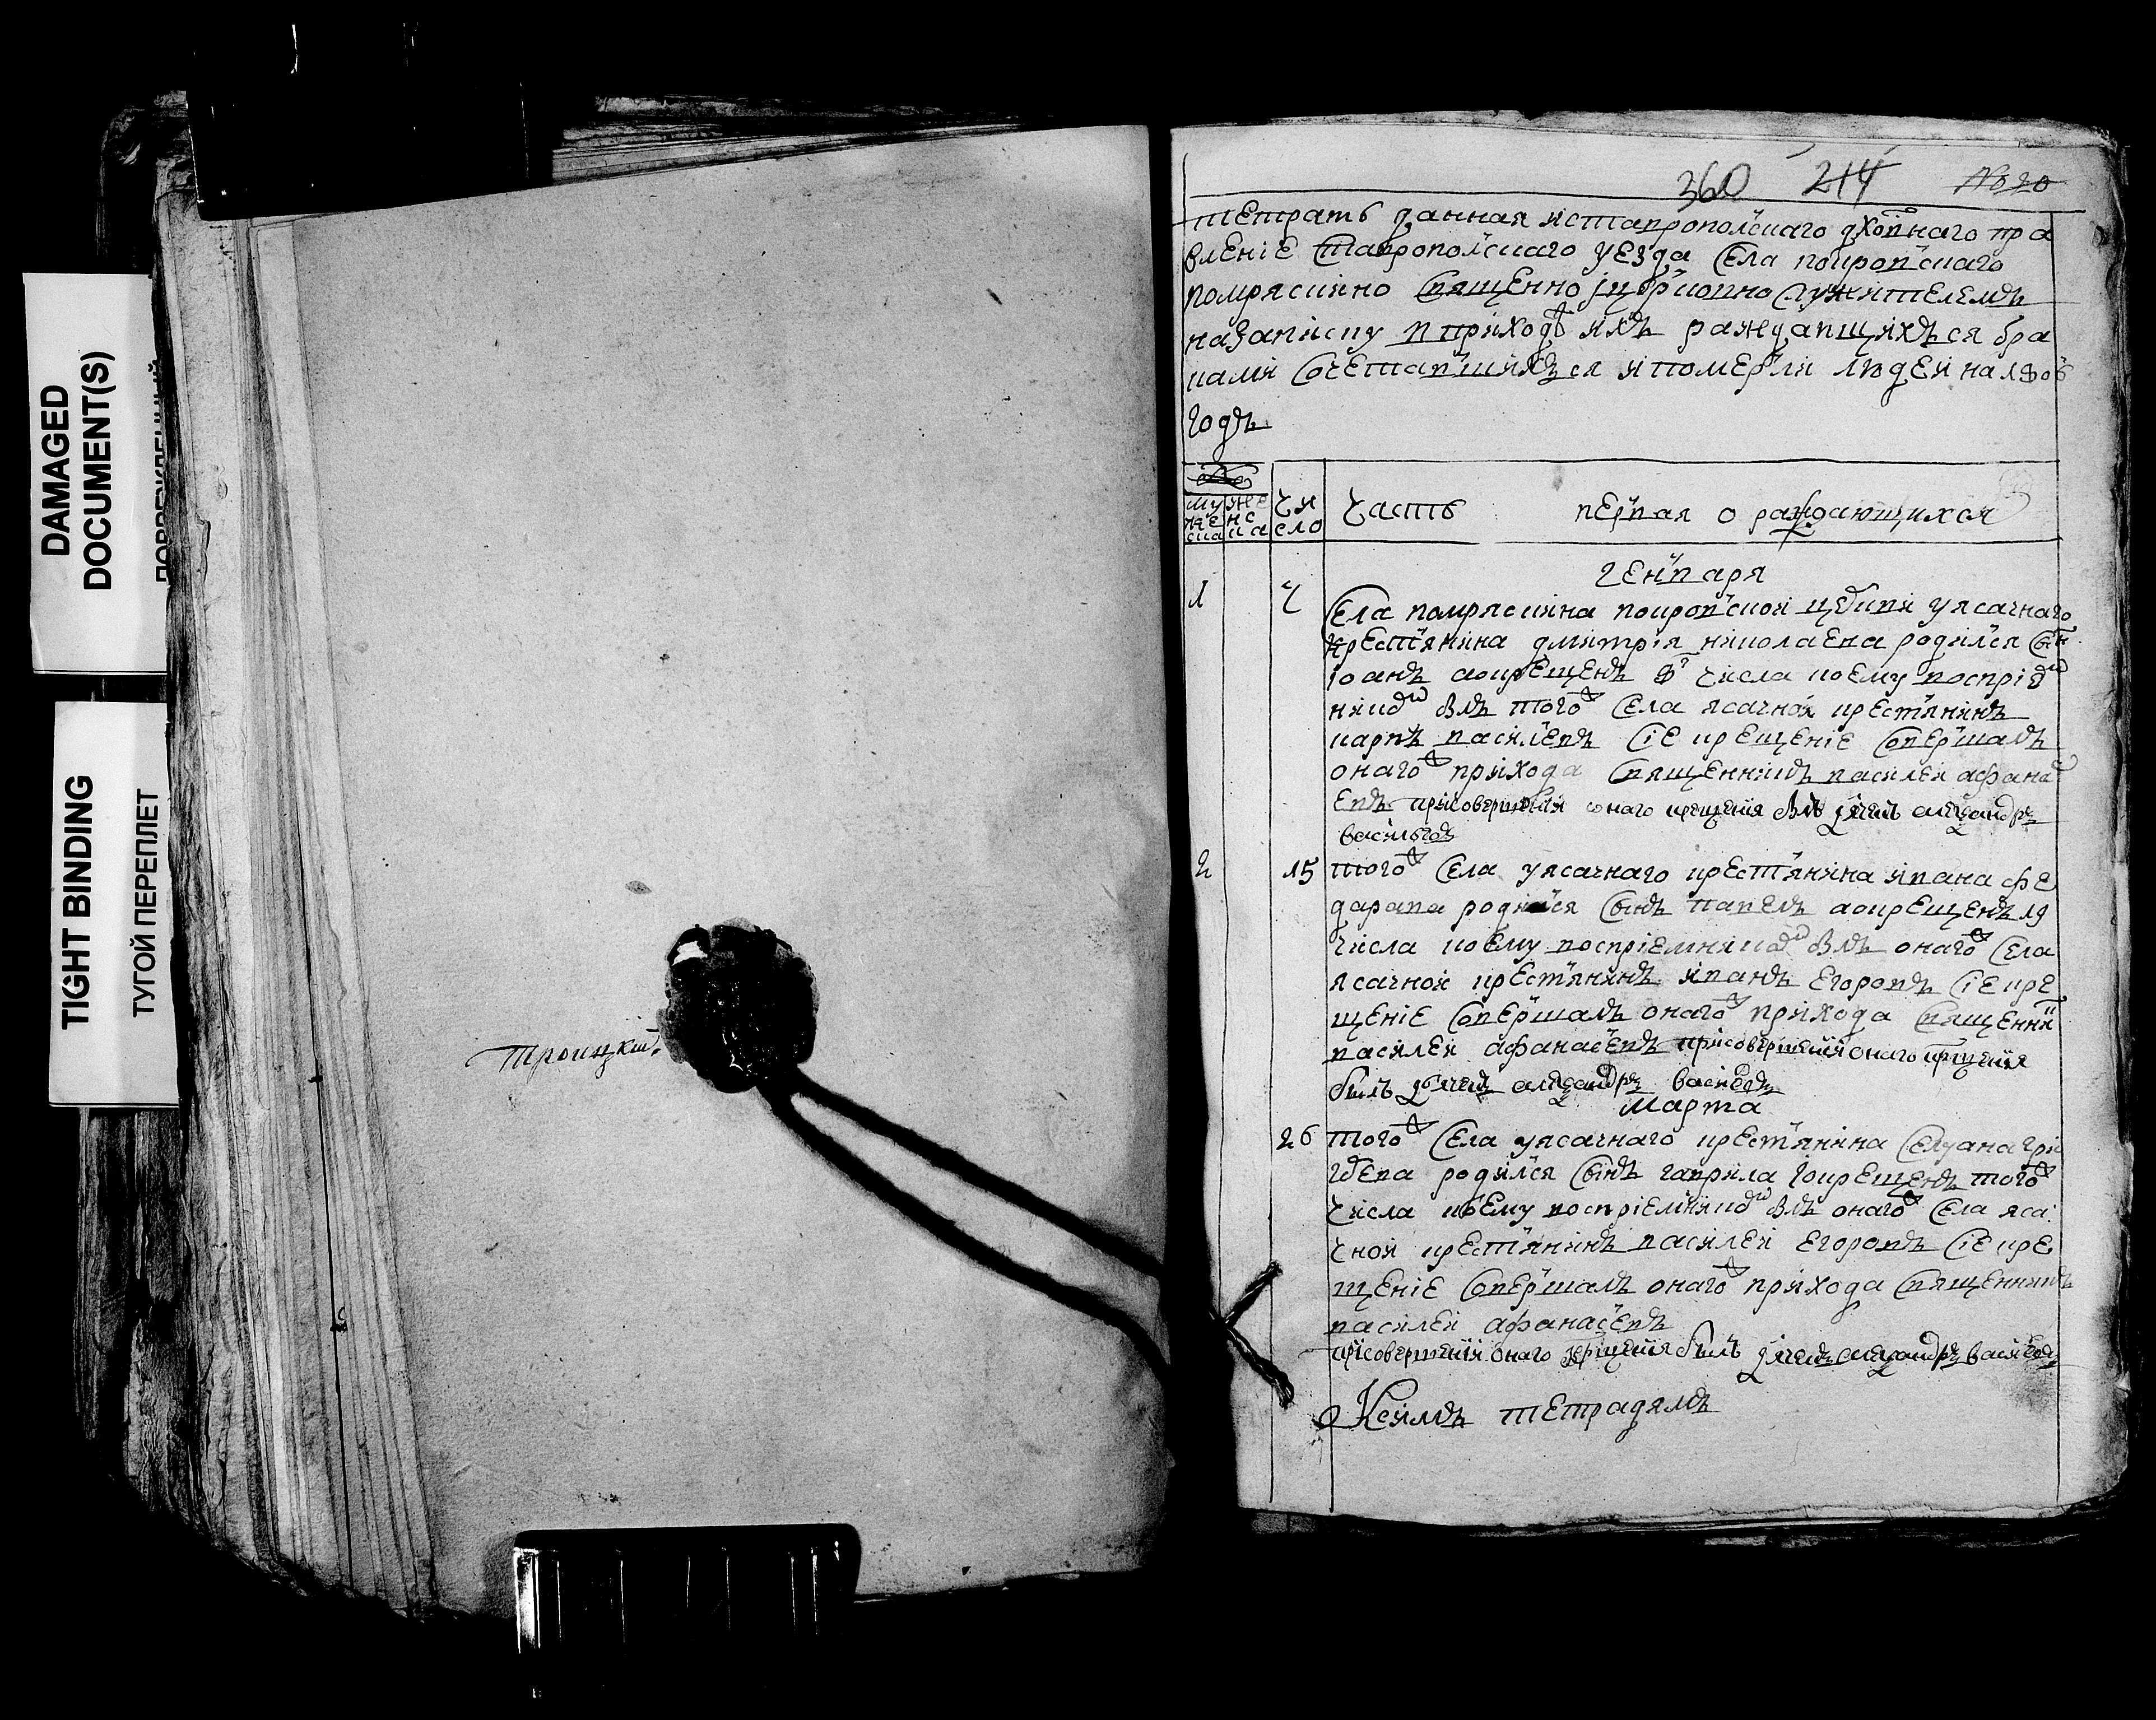 DAMAGED
DOCUMENT(S)
TIGHT BINDING
ТУГОЙ ПЕРЕПЛЕТ
Троицкий
360 214 №20
тетрать данная иставропольскаго дховнаго пра
вленіе ставропольскаго уезда села покровскаго
помряскино священно јцерковно служителемъ
назаписку вприходѣ ихъ раждавшихъся бра
ками сочетавшихъся ипомерли людей на
годъ
муж
еска
жен
ска
чи
сло
Часть первая о раждающихся
генваря
1
Села помряскина покровской цркви уясачнаго
крестьянина дмитрія николаева родился сын
іоанъ аокрещенъ числа коему воспріем
никомъ былъ того села ясачной крестьянинъ
карпъ василевъ сіе крещеніе совершалъ
онаго прихода священникъ василей афана
евъ присовершеніи онаго крещенія былъ дячекъ александръ
васильевъ
2
15
того села уясачнаго крестьянина ивана фе
дарава родился сынъ павелъ аокрещенъ
числа коему воспріемникомъ былъ онаго села
ясачной крестьянинъ иванъ егоровъ сіе кре
щеніе совершалъ онаго прихода священни
василей афанасевъ присовершеніи онаго крещенія
былъ дьячекъ александръ васильевъ
Марта
26
того села уясачнаго крестьянина селуана гри
горева родился сынъ гаврила іокрещенъ того
числа коему воспріемникомъ былъ онаго села яса
чной крестьянинъ василей егоровъ сіе кре
щеніе совершалъ онаго прихода священникъ
василей афанасевъ
присовершеніи онаго крещенія былъ дячекъ александръ васильевъ
Ксимъ тетрадямъ